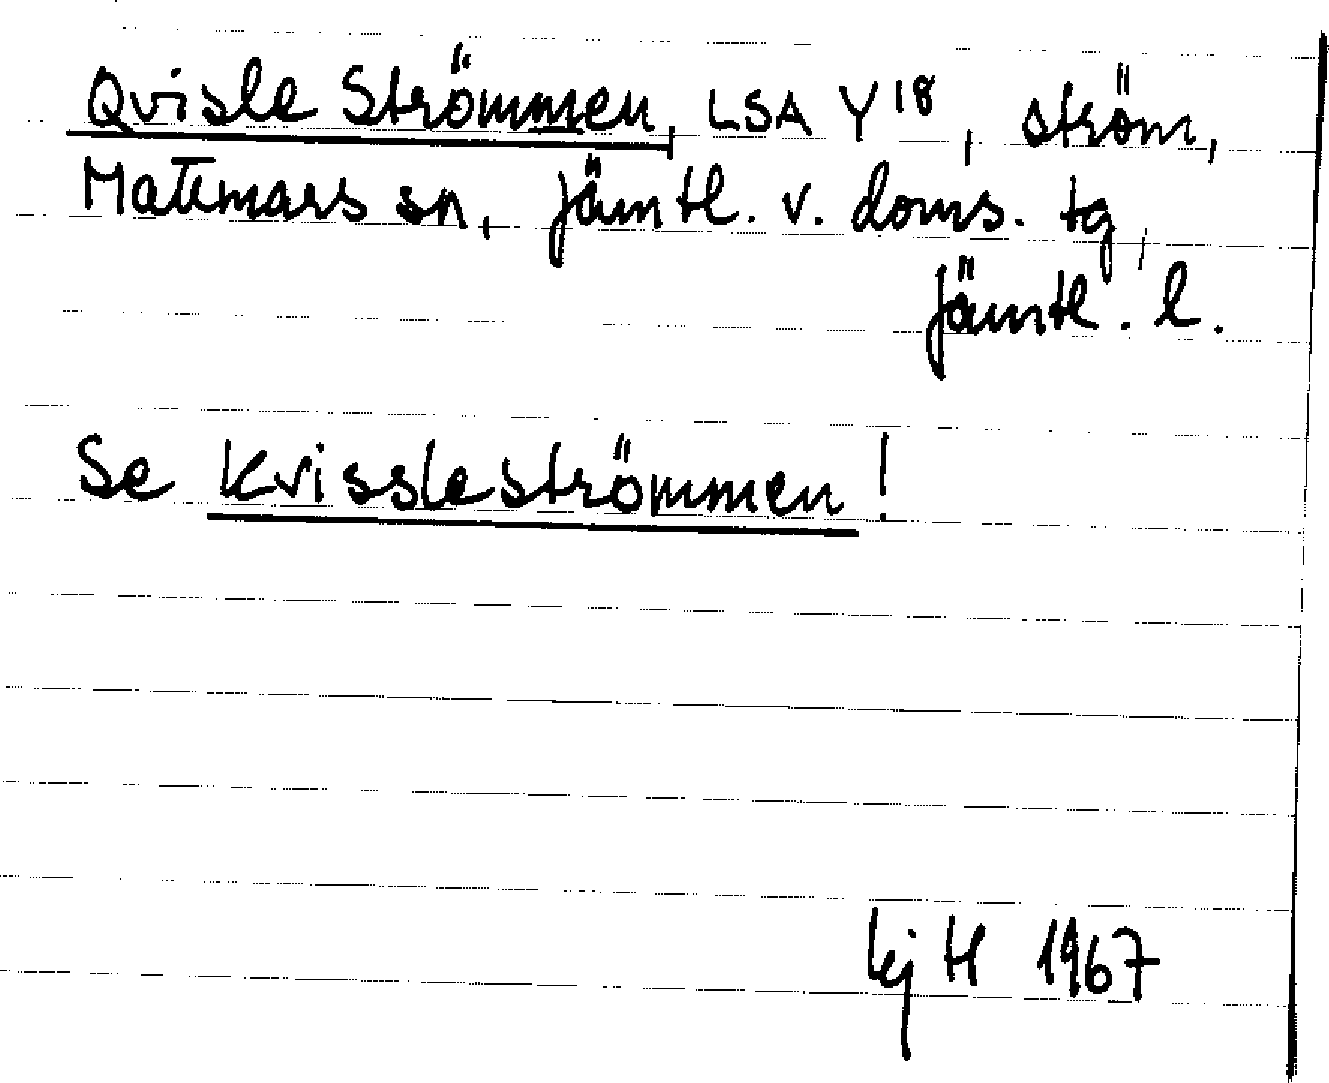 Qvisle Strömmen, LSA Y 18, ström,
Mattmars sn, Jämtl. v. doms. tg,
Jämtl. l.
Se Kvissleströmmen!
kj H 1967